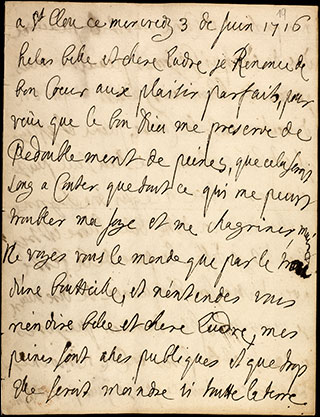 a St Clou ce mercredy 3 de juin 1716
helas belle et chere Ludre je Renonce de
bon Coeur aux plaisir parfaits, pour
veüe que le bon Dieu me preserve de
Redouble ment de peines, que cela serois
long a Conter que tout ce qui me peust
troubler ma joye et me chagriner
Ne voyes vous le monde que par le trou
d'une boutteille, et n'entendes vous
rien dire belle et chere Ludre, mes
peines sont asses publiques et que trop
Elle serait moindre si toutte la terre